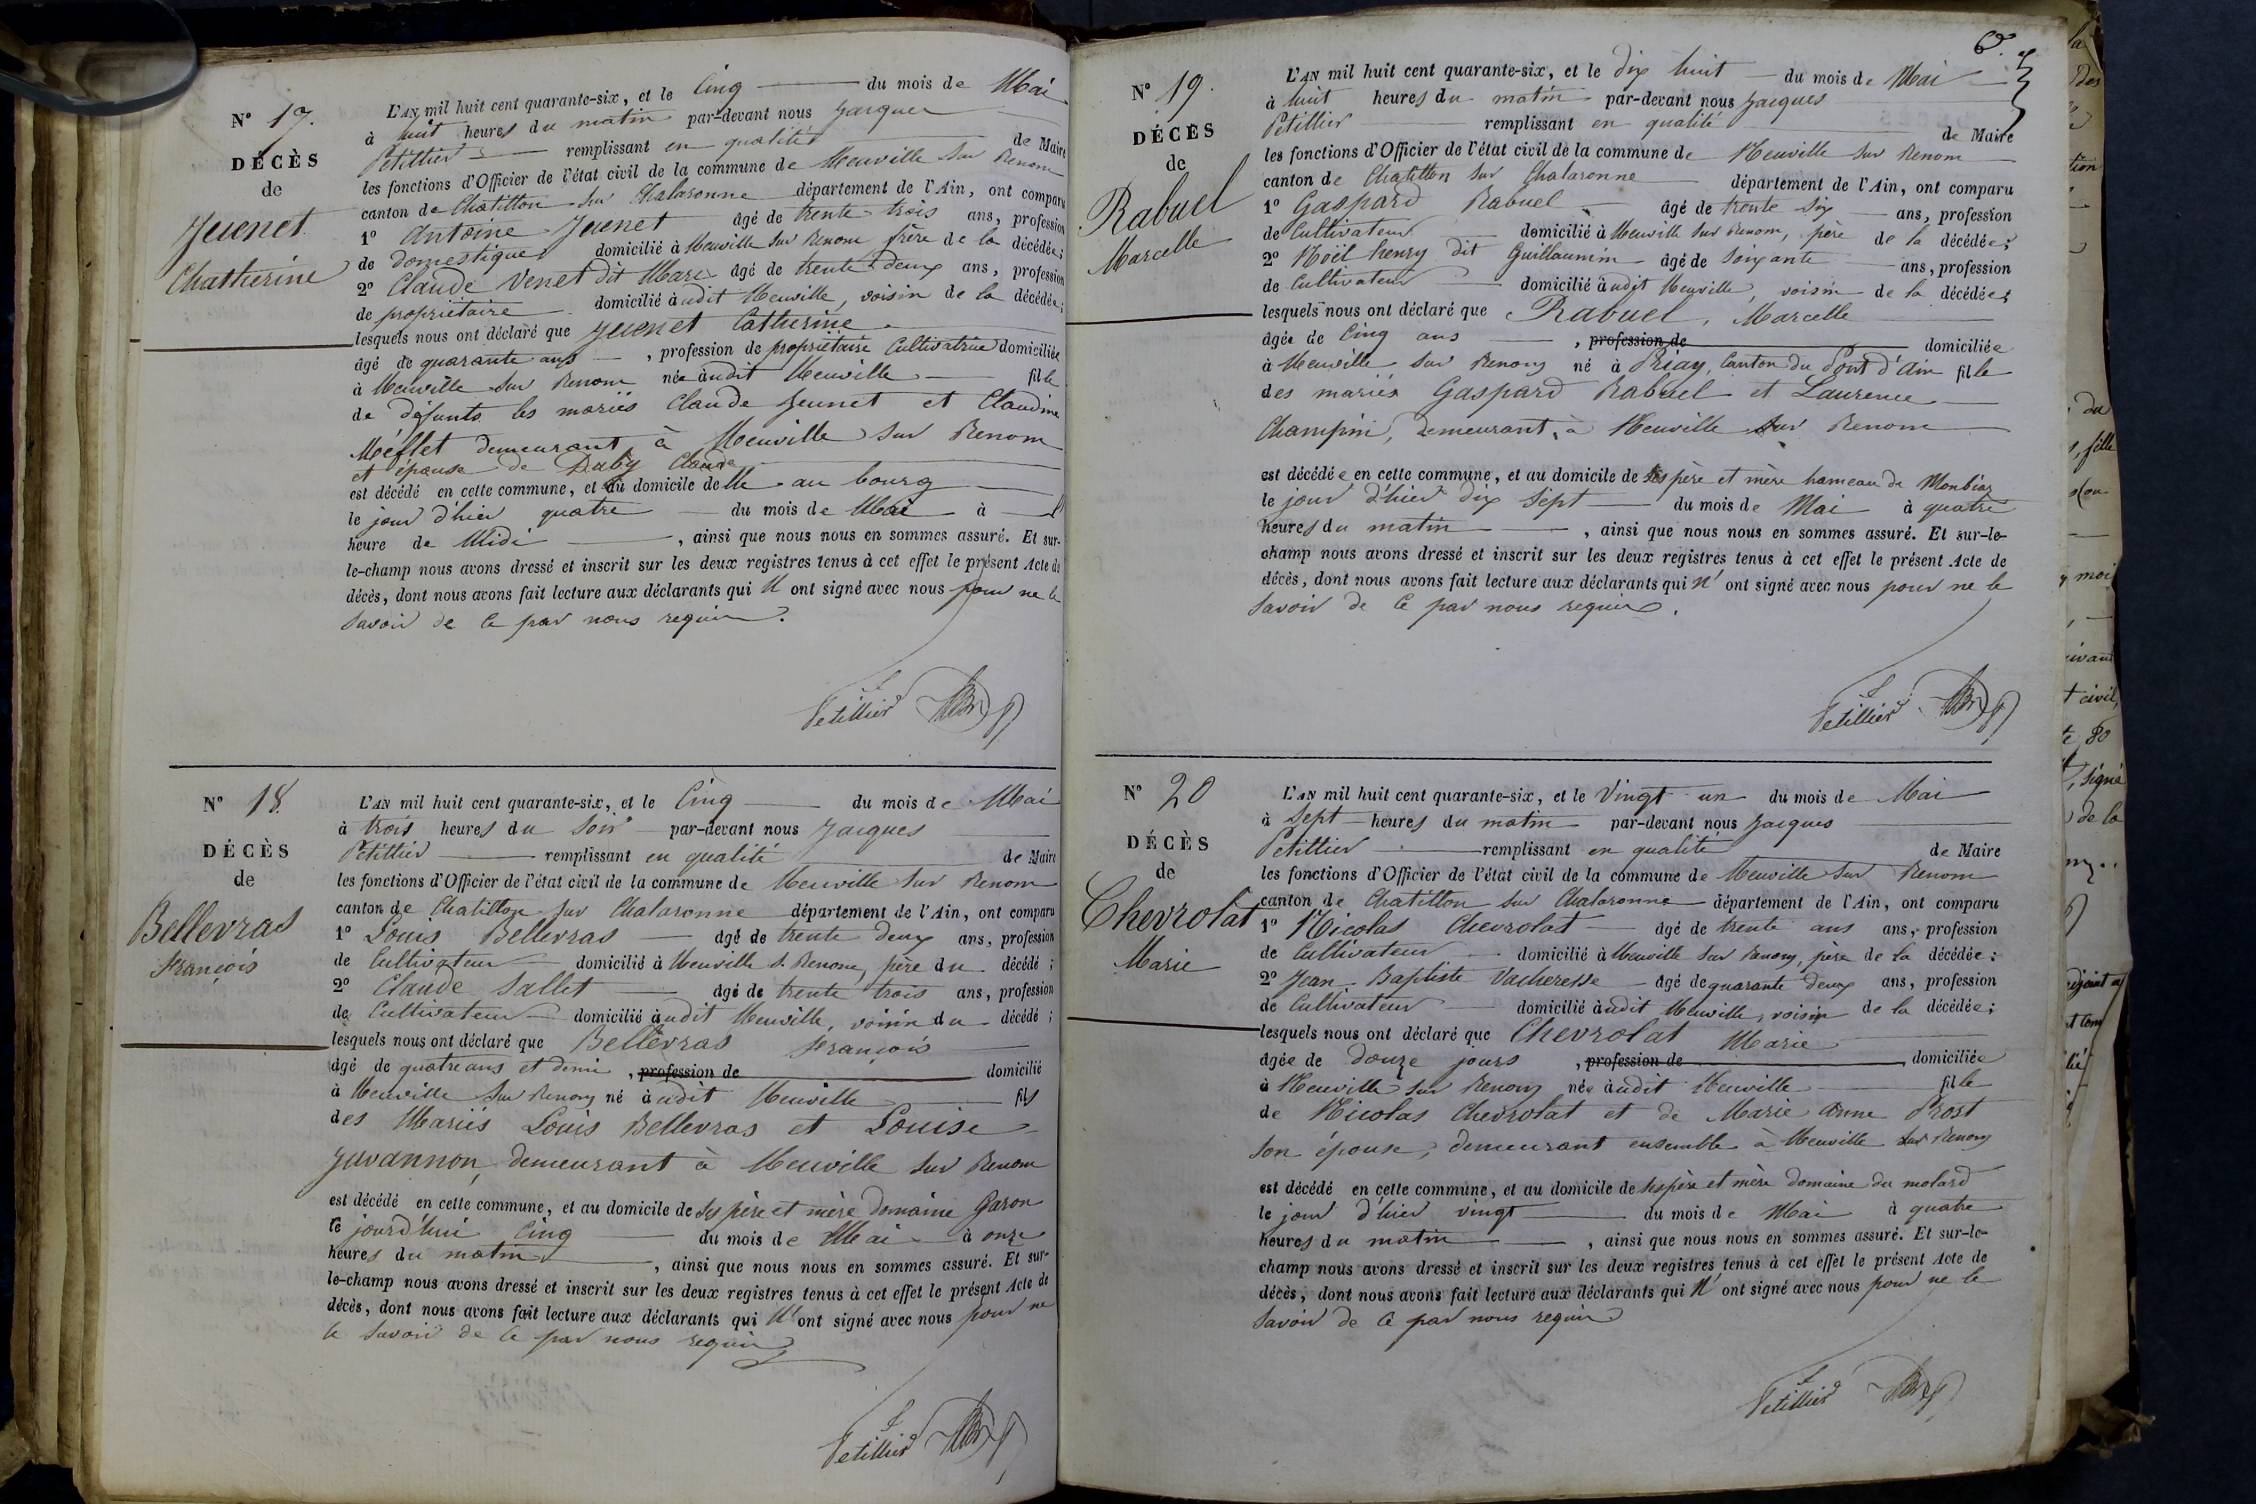 N° 17.
DÉCÈS
de
Jeunet
Chatherine
L'AN mil huit cent quarante-six, et le Cinq du mois de Mai
à huit heures du matin par-devant nous Jacques
Petillier remplissant en qualité de Maire
les fonctions d'Officier de l'état civil de la commune de Neuville sur Renom
canton de Chatillon sur Chalaronne département de l'Ain, ont comparu
1° Antoine Jeunet âgé de trente trois ans, profession
de domestique domicilié à Neuville sur Renom frère de la décédée;
2° Claude Venet dit Mare âgé de trente deux ans, profession
de propriétaire domicilié àudit Neuville, voisin de la décédée;
lesquels nous ont déclaré que Jeunet Catherine
âgé de quarante ans, profession de propriétaire Cultivatrice domiciliée
à Neuville sur Renom née àudit Neuville fille
de défunts les mariés Claude Jeunet et Claudine
Méflet demeurant à Neuville sur Renom
et épouse de Daby Claude
est décédé en cette commune, et au domicile delle au bourg
le jour d'hier quatre du mois de Mai à
heure de Midi, ainsi que nous nous en sommes assuré. Et sur-
le-champ nous avons dressé et inscrit sur les deux registres tenus à cet effet le présent Acte de
décès, dont nous avons fait lecture aux déclarants qui N' ont signé avec nous pour ne le
savoir de ce par nous requis.
Petillier
N° 18.
DÉCÈS
de
Bellevras
François
L'AN mil huit cent quarante-six, et le Cinq du mois de Mai
à trois heures du soir par-devant nous Jacques
Petillier remplissant en qualité de Maire
les fonctions d'Officier de l'état civil de la commune de Neuville sur Renom
canton de Chatillon sur Chalaronne département de l'Ain, ont comparu
1° Louis Bellevras âgé de trente deux ans, profession
de Cultivateur domicilié à Neuville s. Renom, père du décédé;
2° Claude Sallet âgé de trente trois ans, profession
de Cultivateur domicilié àudit Neuville, voisin du décédé;
lesquels nous ont déclaré que Bellevras François
âgé de quatre ans et demi, profession de domicilié
à Neuville sur Renom né àudit Neuville fils
des Mariés Louis Bellevras et Louise
Juvannon, demeurant à Neuville sur Renom
est décédé en cette commune, et au domicile de ses père et mère domaine Garon
le jourd'hui Cinq du mois de Mai à onze
heures du matin, ainsi que nous nous en sommes assuré. Et sur-
le-champ nous avons dressé et inscrit sur les deux registres tenus à cet effet le présent Acte de
décès, dont nous avons fait lecture aux déclarants qui N' ont signé avec nous pour ne
le savoir de ce par nous requis
Petillier
6.
N° 19.
DÉCÈS
de
Rabuel
Marcelle
L'AN mil huit cent quarante-six, et le dix huit du mois de Mai
à huit heures du matin par-devant nous Jacques
Petillier remplissant en qualité de Maire
les fonctions d'Officier de l'état civil de la commune de Neuville sur Renom
canton de Chatillon sur Chalaronne département de l'Ain, ont comparu
1° Gaspard Rabuel âgé de trente six ans, profession
de Cultivateur domicilié à Neuville sur Renom, père de la décédée;
2° Noël henry dit Guillaumin âgé de soixante ans, profession
de Cultivateur domicilié àudit Neuville, voisin de la décédée;
lesquels nous ont déclaré que Rabuel, Marcelle
âgée de Cinq ans, profession de domiciliée
à Neuville sur Renom né à Priay, Canton du Pont d'Ain fille
des mariés Gaspard Rabuel et Laurence
Champin, demeurant à Neuville sur Renom
est décédée en cette commune, et au domicile de ses père et mère hameau de Monbiaz
le jour d'hier dix sept du mois de Mai à quatre
heures du matin, ainsi que nous nous en sommes assuré. Et sur-le-
champ nous avons dressé et inscrit sur les deux registres tenus à cet effet le présent Acte de
décès, dont nous avons fait lecture aux déclarants qui N' ont signé avec nous pour ne le
savoir de ce par nous requis.
Petillier
N° 20
DÉCÈS
de
Chevrolat
Marie
L'AN mil huit cent quarante-six, et le Vingt un du mois de Mai
à sept heures du matin par-devant nous Jacques
Petillier remplissant en qualité de Maire
les fonctions d'Officier de l'état civil de la commune de Neuville sur Renom
canton de Chatillon sur Chalaronne département de l'Ain, ont comparu
1° Nicolas Chevrolat âgé de trente ans ans, profession
de Cultivateur domicilié à Neuville sur Renom, père de la décédée;
2° Jean Baptiste Vacheresse âgé de quarante deux ans, profession
de Cultivateur domicilié àudit Neuville, voisin de la décédée;
lesquels nous ont déclaré que Chevrolat Marie
âgée de douze jours, profession de domiciliée
à Neuville sur Renom née àudit Neuville fille
de Nicolas Chevrolat et de Marie Anne Prost
son épouse, demeurant ensemble à Neuville sur Renom
est décédé en cette commune, et au domicile de ses père et mère domaine du molard
le jour d'hier vingt du mois de Mai à quatre
heures du matin, ainsi que nous nous en sommes assuré. Et sur-le-
champ nous avons dressé et inscrit sur les deux registres tenus à cet effet le présent Acte de
décès, dont nous avons fait lecture aux déclarants qui N' ont signé avec nous pour ne le
savoir de ce par nous requis
Petillier